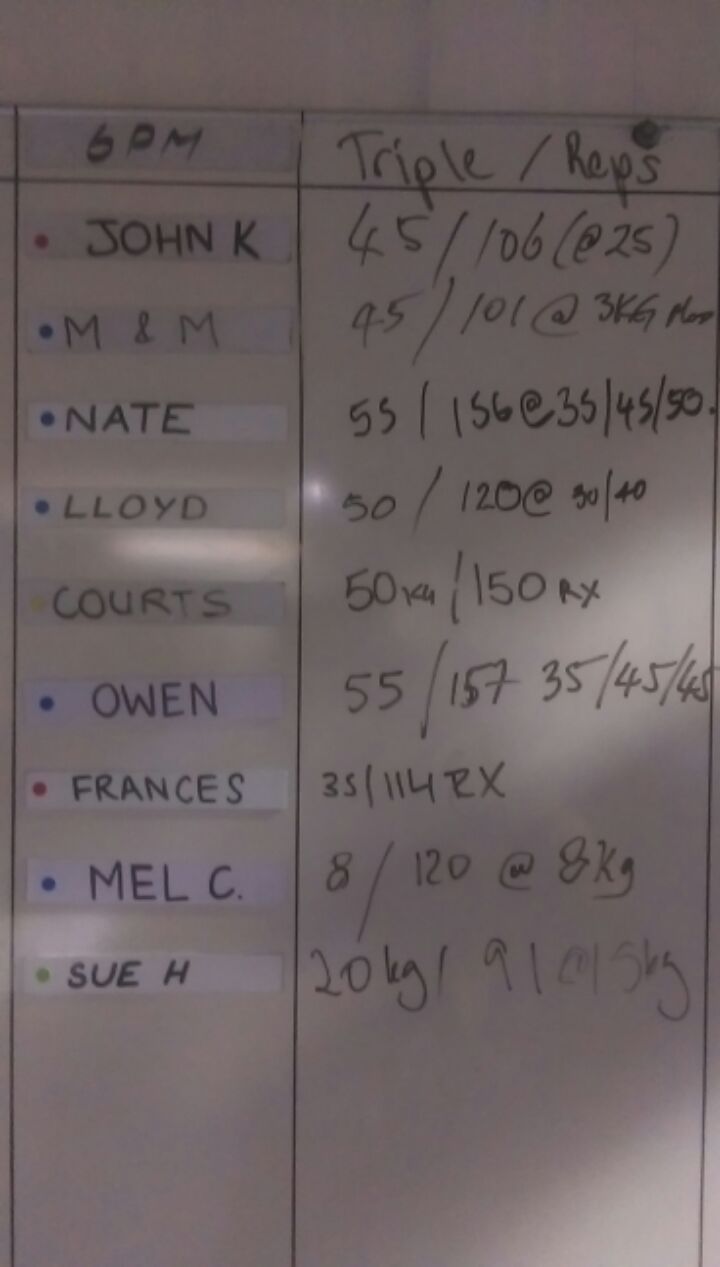 6PM Triple / Reps
JOHN K 45 / 106 (@25)
M & M 45 / 101 @ 3KG
NATE 55 / 156@35/45/50.
LLOYD 50 / 120@ 30/40
COURTS 50KG / 150 RX
OWEN 55 / 157 35/45/45
FRANCES 35/114 RX
MEL C. 8 / 120 @ 8kg
SUE H 20kg / 91 @15kg